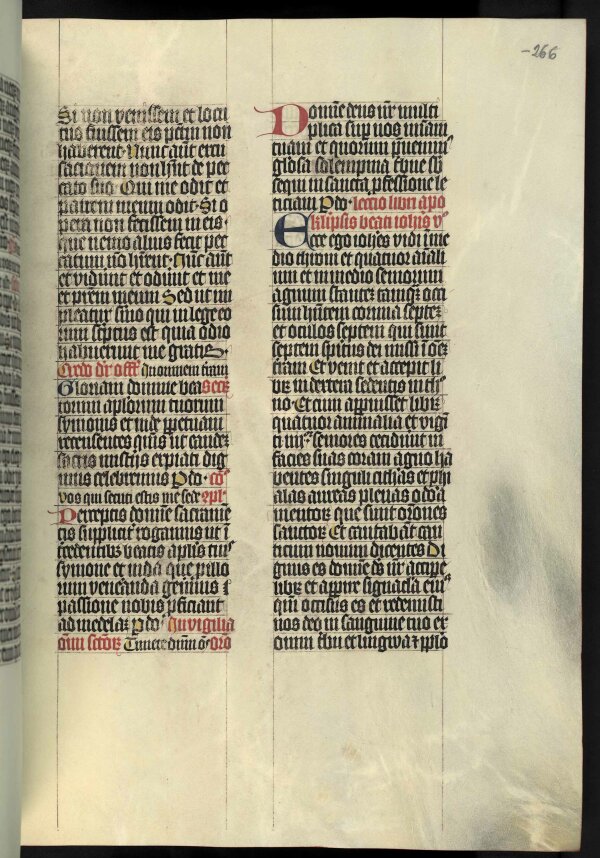 -266
Si non venissem et locu
tus fuissem eis pctm non
haberent Nunc aut excu
sacionem non hnt de pec
cato suo Qui me odit et
patrem meum odit Si o
pera non fecissem in eis
que nemo alius fecit pec
catum no hrent Nuc aut
et vidunt et odunt et me
et prem meum Sed ut im
pleatur smo qui in lege eo
rum scptus est quia odio
habuerunt me gratis
Credo dr offm In omnem tram
Gloriam domine bea secr
torum aplorum tuorum
symonis et iude ppetuam
recensentes qus ut eandem
sacris mistijs expiati dig
nius celebremus P do co
vos qui secuti estis me sed cpl
Perceptis domine sacrame
tis supplicit rogamus ut i
tercedentibz beatis aplis tuis
symone et iuda que p illo
rum veneranda gerimus
passione nobis pficiant
ad medelam P do In vigilia
oim sctorz Timete dnm o oro
Domine deus nr multi
plica sup nos miam
tuam et quorum pvenim
glosa solempnia tbue sb
sequi in sancta pfessione le
ticiam P do lectio libri apo
kalipsis beati iohis
Ecce ego iohes vidi in me
dio throni et quatuor aiali
um et in medio seniorum
agnum stantem tamqz occi
sum hntem cornua septem
et oculos septem qui sunt
septem spiritus dei missi i oem
tram Et venit et accepit li
brum de dextera sedentis in th
no Et cum apperuisset librum
quatuor animalia et vigi
ti iiii seniores ceciderunt in
facies suas coram agno ha
bentes singuli citharas et phi
alas aureas plenas odora
mentorz que sunt orones
sanctorz Et cantabant can
ticum novum dicentes Di
gnus es domine ds nr accipe
librum et apperire signacla eius
qui occisus es et redemisti
nos deo in sanguine tuo ex
omni tbu et lingwa et pplo